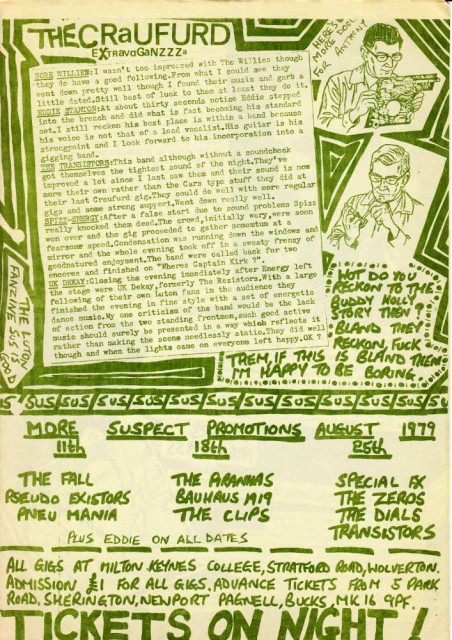 THE CRAUFURD
EXTravaGaNZZZa
HERE'S
MORE DOOL
FOR ANTHENY
SORE WILLIES:I wasn't too impressed with The Willies though
they do have a good following.From what I could see they
went down pretty well though I found their music and garb a
little dated.Still best of luck to them at least they do it.
EDDIE STANTON:At about thirty seconds notice Eddie stepped
into the breach and did what is fast becoming his standard
set.I still reckon his best place is within a band because
his voice is not that of a lead vocalist.His guitar is his
strongpoint and I look forward to his incorporation into a
gigging band.
THE TRANSISTORS:This band although without a soundcheck
got themselves the tightest sound of the night.They've
improved a lot since I last saw them and their sound is now
more their own rather than the Cars type stuff they did at
their last Craufurd gig.They could do well with more regular
gigs and some strong support.Went down really well.
SPIZZ-ENERGY:After a false start due to sound problems Spizz
really knocked them dead.The crowd,initially wary,were soon
won over and the gig proceeded to gather momentum at a
fearsome speed.Condensation was running down the windows and
mirror and the whole evening took off in a sweaty frenzy of
goodnatured enjoyment.The band were called back for two
encores and finished on "Wheres Captain Kirk ?".
UK DEKAY:Closing the evening immediately after Energy left
the stage were UK Dekay,formerly The Resistors.With a large
following of their own Luton fans in the audience they
finished the evening in fine style with a set of energetic
dance music.My one criticism of the band would be the lack
of action from the two standing frontmen,such good active
music should surely be presented in a way which reflects it
rather than making the scene needlessly static.They did well
though and when the lights came on everyone left happy.OK ?
THE LUTON
FANZINE SUS IS
GOOD
WOT DO YOU
RECKON TO THE
BUDDY HOLLY
STORY THEN
BLAND THEY
RECKON, FUCK
THEM, IF THIS IS BLAND THEN
I'M HAPPY TO BE BORING.
SUS SUS SUS SUS SUS SUS SUS SUS SUS SUS SUS SUS SUS
MORE SUSPECT PROMOTIONS AUGUST 1979
11th 18th 25th
THE FALL THE PIRANHAS SPECIAL FX
PSEUDO EXISTORS BAUHAUS 1919 THE ZEROS
PNEU MANIA THE CLIPS THE DIALS
TRANSISTORS
PLUS EDDIE ON ALL DATES
ALL GIGS AT MILTON KEYNES COLLEGE, STRATFORD ROAD, WOLVERTON.
ADMISSION £1 FOR ALL GIGS, ADVANCE TICKETS FROM 5 PARK
ROAD, SHERINGTON, NEWPORT PAGNELL, BUCKS, MK16 9PF.
TICKETS ON NIGHT !